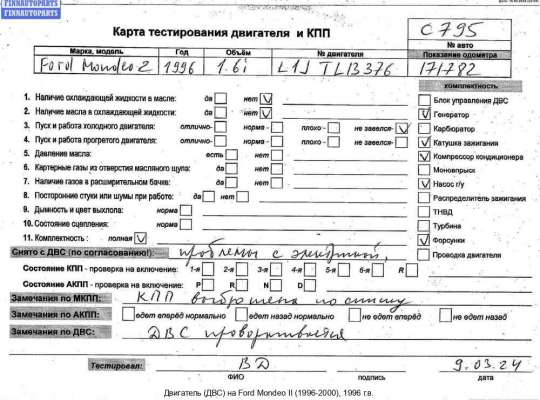 FINNAUTOPARTS
FINNAUTOPARTS
Карта тестирования двигателя и КПП
С 795
№ авто
Марка, модель Год Объём № двигателя Показание одометра
Ford Mondeo 2 1996 1.6i L1J TL13376 171782
комплектность
1. Наличие охлаждающей жидкости в масле: да нет V
2. Наличие масла в охлаждающей жидкости: да нет V
3. Пуск и работа холодного двигателя: отлично- норма - плохо- не завелся- V
4. Пуск и работа прогретого двигателя: отлично- норма - плохо- не завелся-
5. Давление масла: есть нет
6. Картерные газы из отверстия масляного щупа: да нет
7. Наличие газов в расширительном бачке: да нет
8. Посторонние стуки или шумы при работе: да нет
9. Дымность и цвет выхлопа: норма
10. Состояние сцепления: норма
11. Комплектность : полная V
Блок управления ДВС
V Генератор
Карбюратор
V Катушка зажигания
V Компрессор кондиционера
Моновпрыск
V Насос г/у
Распределитель зажигания
ТНВД
Турбина
V Форсунки
Проводка двигателя
Снято с ДВС (по согласованию!): проблемы с
Состояние КПП - проверка на включение: 1-я 2-я 3-я 4-я 5-я 6-я R
Состояние АКПП - проверка на включение: P R N D
Замечания по МКПП: КПП выброшена по
Замечания по АКПП: едет вперед нормально едет назад нормально не едет вперёд не едет назад
Замечания по ДВС: ДВС проворачивается
Тестировал: ВД 9.03.24
ФИО подпись дата
Двигатель (ДВС) на Ford Mondeo II (1996-2000), 1996 г.в.